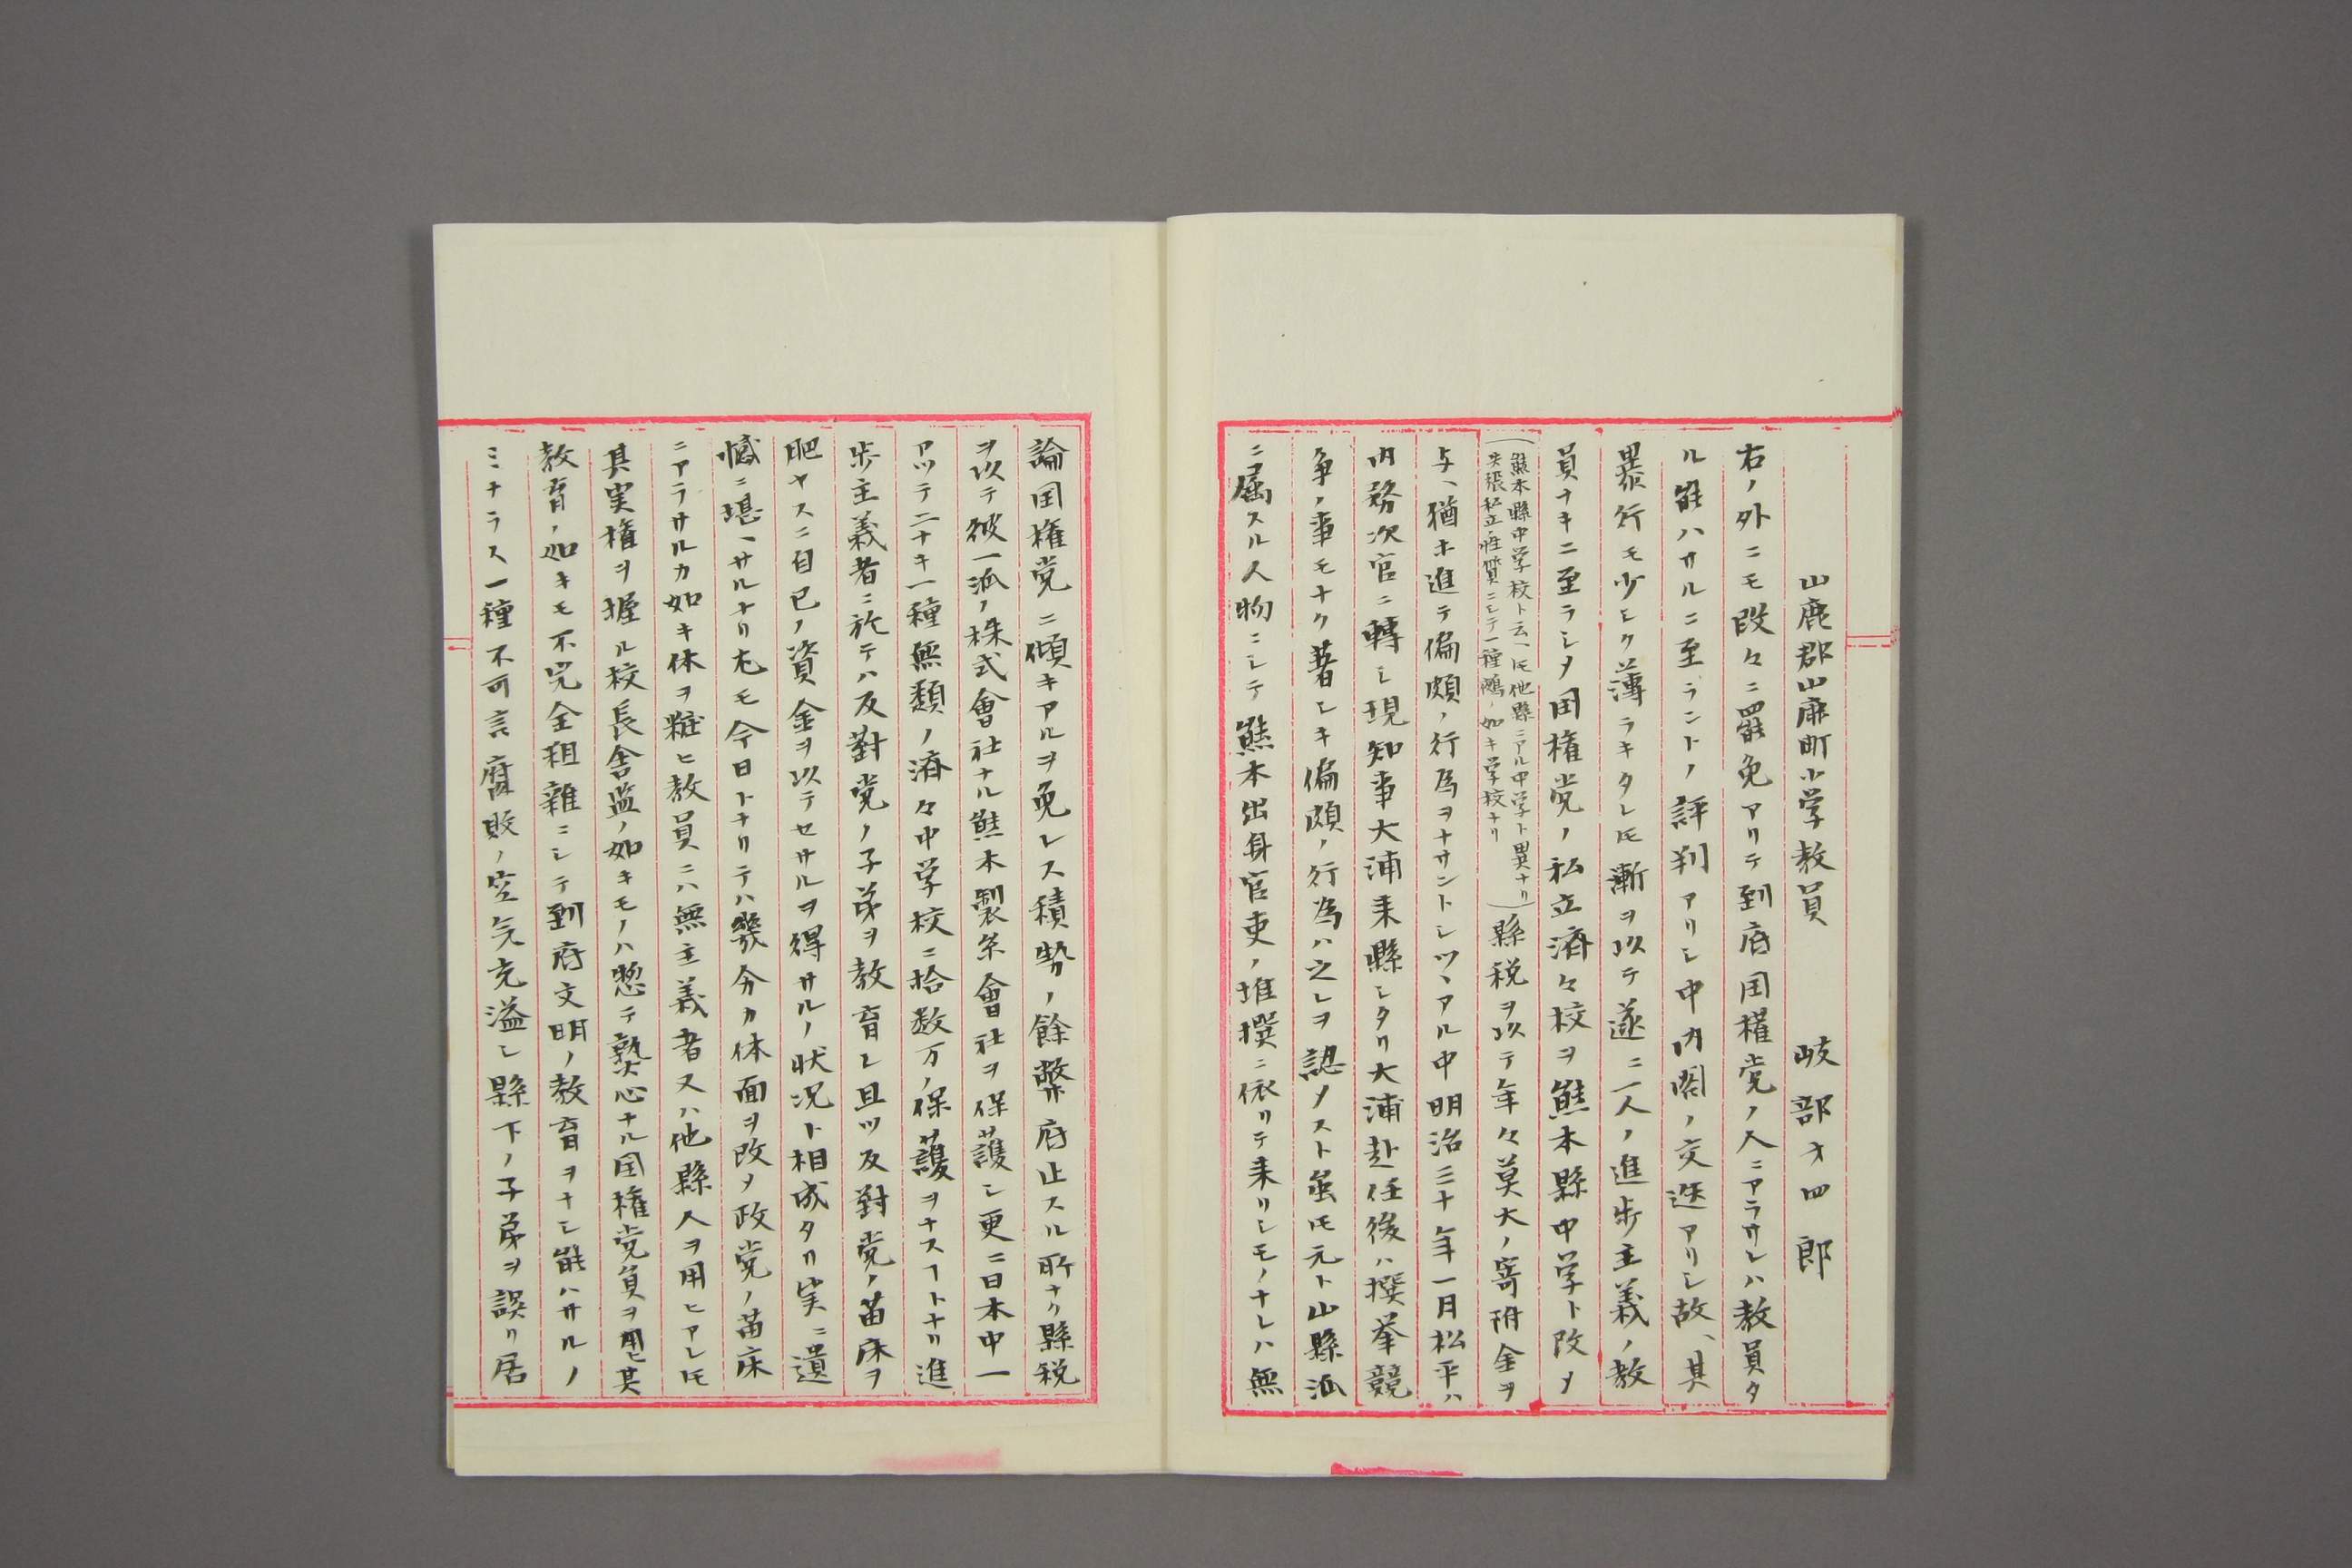 山鹿郡山鹿町小学教員　岐部才四郎
右ノ外ニモ段々ニ罷免アリテ到底国権党ノ人ニアラサレハ教員タ
ル能ハサルニ至ラントノ評判アリシ中内閣ノ交迭アリシ故、其
暴行モ少シク薄ラキタレ𪜈漸ヲ以テ遂ニ一人ノ進歩主義ノ教
員ナキニ至ラシメ国権党ノ私立済々校ヲ熊本縣中学ト改メ
（熊本縣中学校ト云ヘ𪜈他縣ニアル中学ト異ナリ
矢張私立ノ性質ニシテ一種鵺ノ如キ学校ナリ）縣税ヲ以テ年々莫大ノ寄附金ヲ
与ヘ猶ホ進テ偏頗ノ行為ヲナサントシツヽアル中明治三十年一月松平ハ
内務次官ニ轉シ現知事大浦来縣シタリ大浦赴任後ハ撰挙競
争ノ事モナク著シキ偏頗ノ行為ハ之レヲ認メスト虽𪜈元ト山縣派
ニ属スル人物ニシテ熊本出身官吏ノ推撰ニ依リテ来リシモノナレハ無
論国権党ニ傾キアルヲ免レス積勢ノ餘弊底止スル所ナク縣税
ヲ以テ彼一派ノ株式會社ナル熊本製糸會社ヲ保護シ更ニ日本中一
アツテ二ナキ一種無類ノ済々中学校ニ拾数万ノ保護ヲナスヿトナリ進
歩主義者ニ於テハ反對党ノ子弟ヲ教育シ且ツ反對党ノ苗床ヲ
肥ヤスニ自己ノ資金ヲ以テセサルヲ得サルノ状況ト相成タリ実ニ遺
憾ニ堪ヘサルナリ尤モ今日トナリテハ幾分カ体面ヲ改メ政党ノ苗床
ニアラサルカ如キ体ヲ粧ヒ教員ニハ無主義者又ハ他縣人ヲ用ヒアレ𪜈
其実権ヲ握ル校長舎監ノ如キモノハ惣テ熱心ナル国権党員ヲ用ヒ其
教育ノ如キモ不完全粗雑ニシテ到底文明ノ教育ヲナシ能ハサルノ
ミナラス一種不可言腐敗ノ空気充溢シ縣下ノ子弟ヲ誤リ居